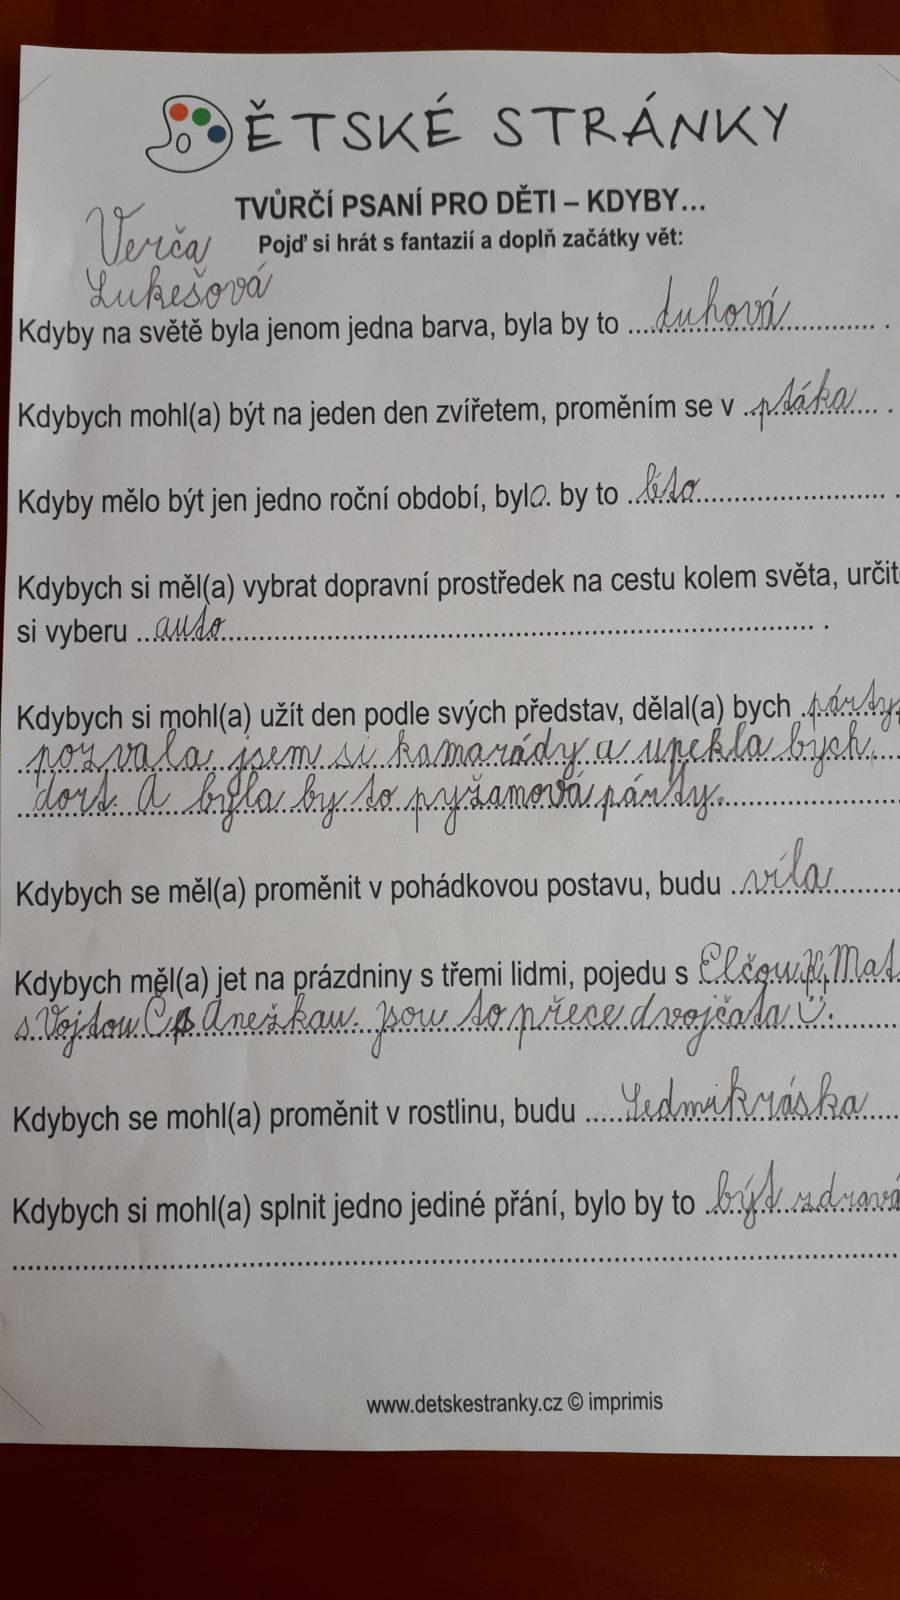 DĚTSKÉ STRÁNKY
TVŮRČÍ PSANÍ PRO DĚTI – KDYBY...
Verča
Pojď si hrát s fantazií a doplň začátky vět:
Lukešová
Kdyby na světě byla jenom jedna barva, byla by to duhová.
Kdybych mohl(a) být na jeden den zvířetem, proměním se v ptáka.
Kdyby mělo být jen jedno roční období, bylo by to léto.
Kdybych si měl(a) vybrat dopravní prostředek na cestu kolem světa, určit
si vyberu auto.
Kdybych si mohl(a) užít den podle svých představ, dělal(a) bych párty,
pozvala jsem si kamarády a upekla bych
dort. A byla by to pyžamová párty.
Kdybych se měl(a) proměnit v pohádkovou postavu, budu víla
Kdybych měl(a) jet na prázdniny s třemi lidmi, pojedu s Elčou H, Mat
s Vojtou Č, s Anežkau. jsou to přece dvojčata Ü.
Kdybych se mohl(a) proměnit v rostlinu, budu Sedmikráska
Kdybych si mohl(a) splnit jedno jediné přání, bylo by to být zdravá
www.detskestranky.cz © imprimis